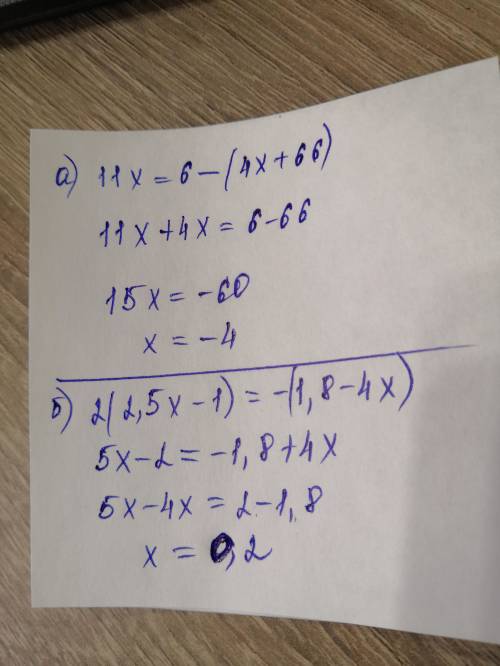 а) 11x = 6 - (4x + 66)
11x + 4x = 6 - 66
15x = -60
x = -4
б) 2(2,5x - 1) = -(1,8 - 4x)
5x - 2 = -1,8 + 4x
5x - 4x = 2 - 1,8
x = 0,2